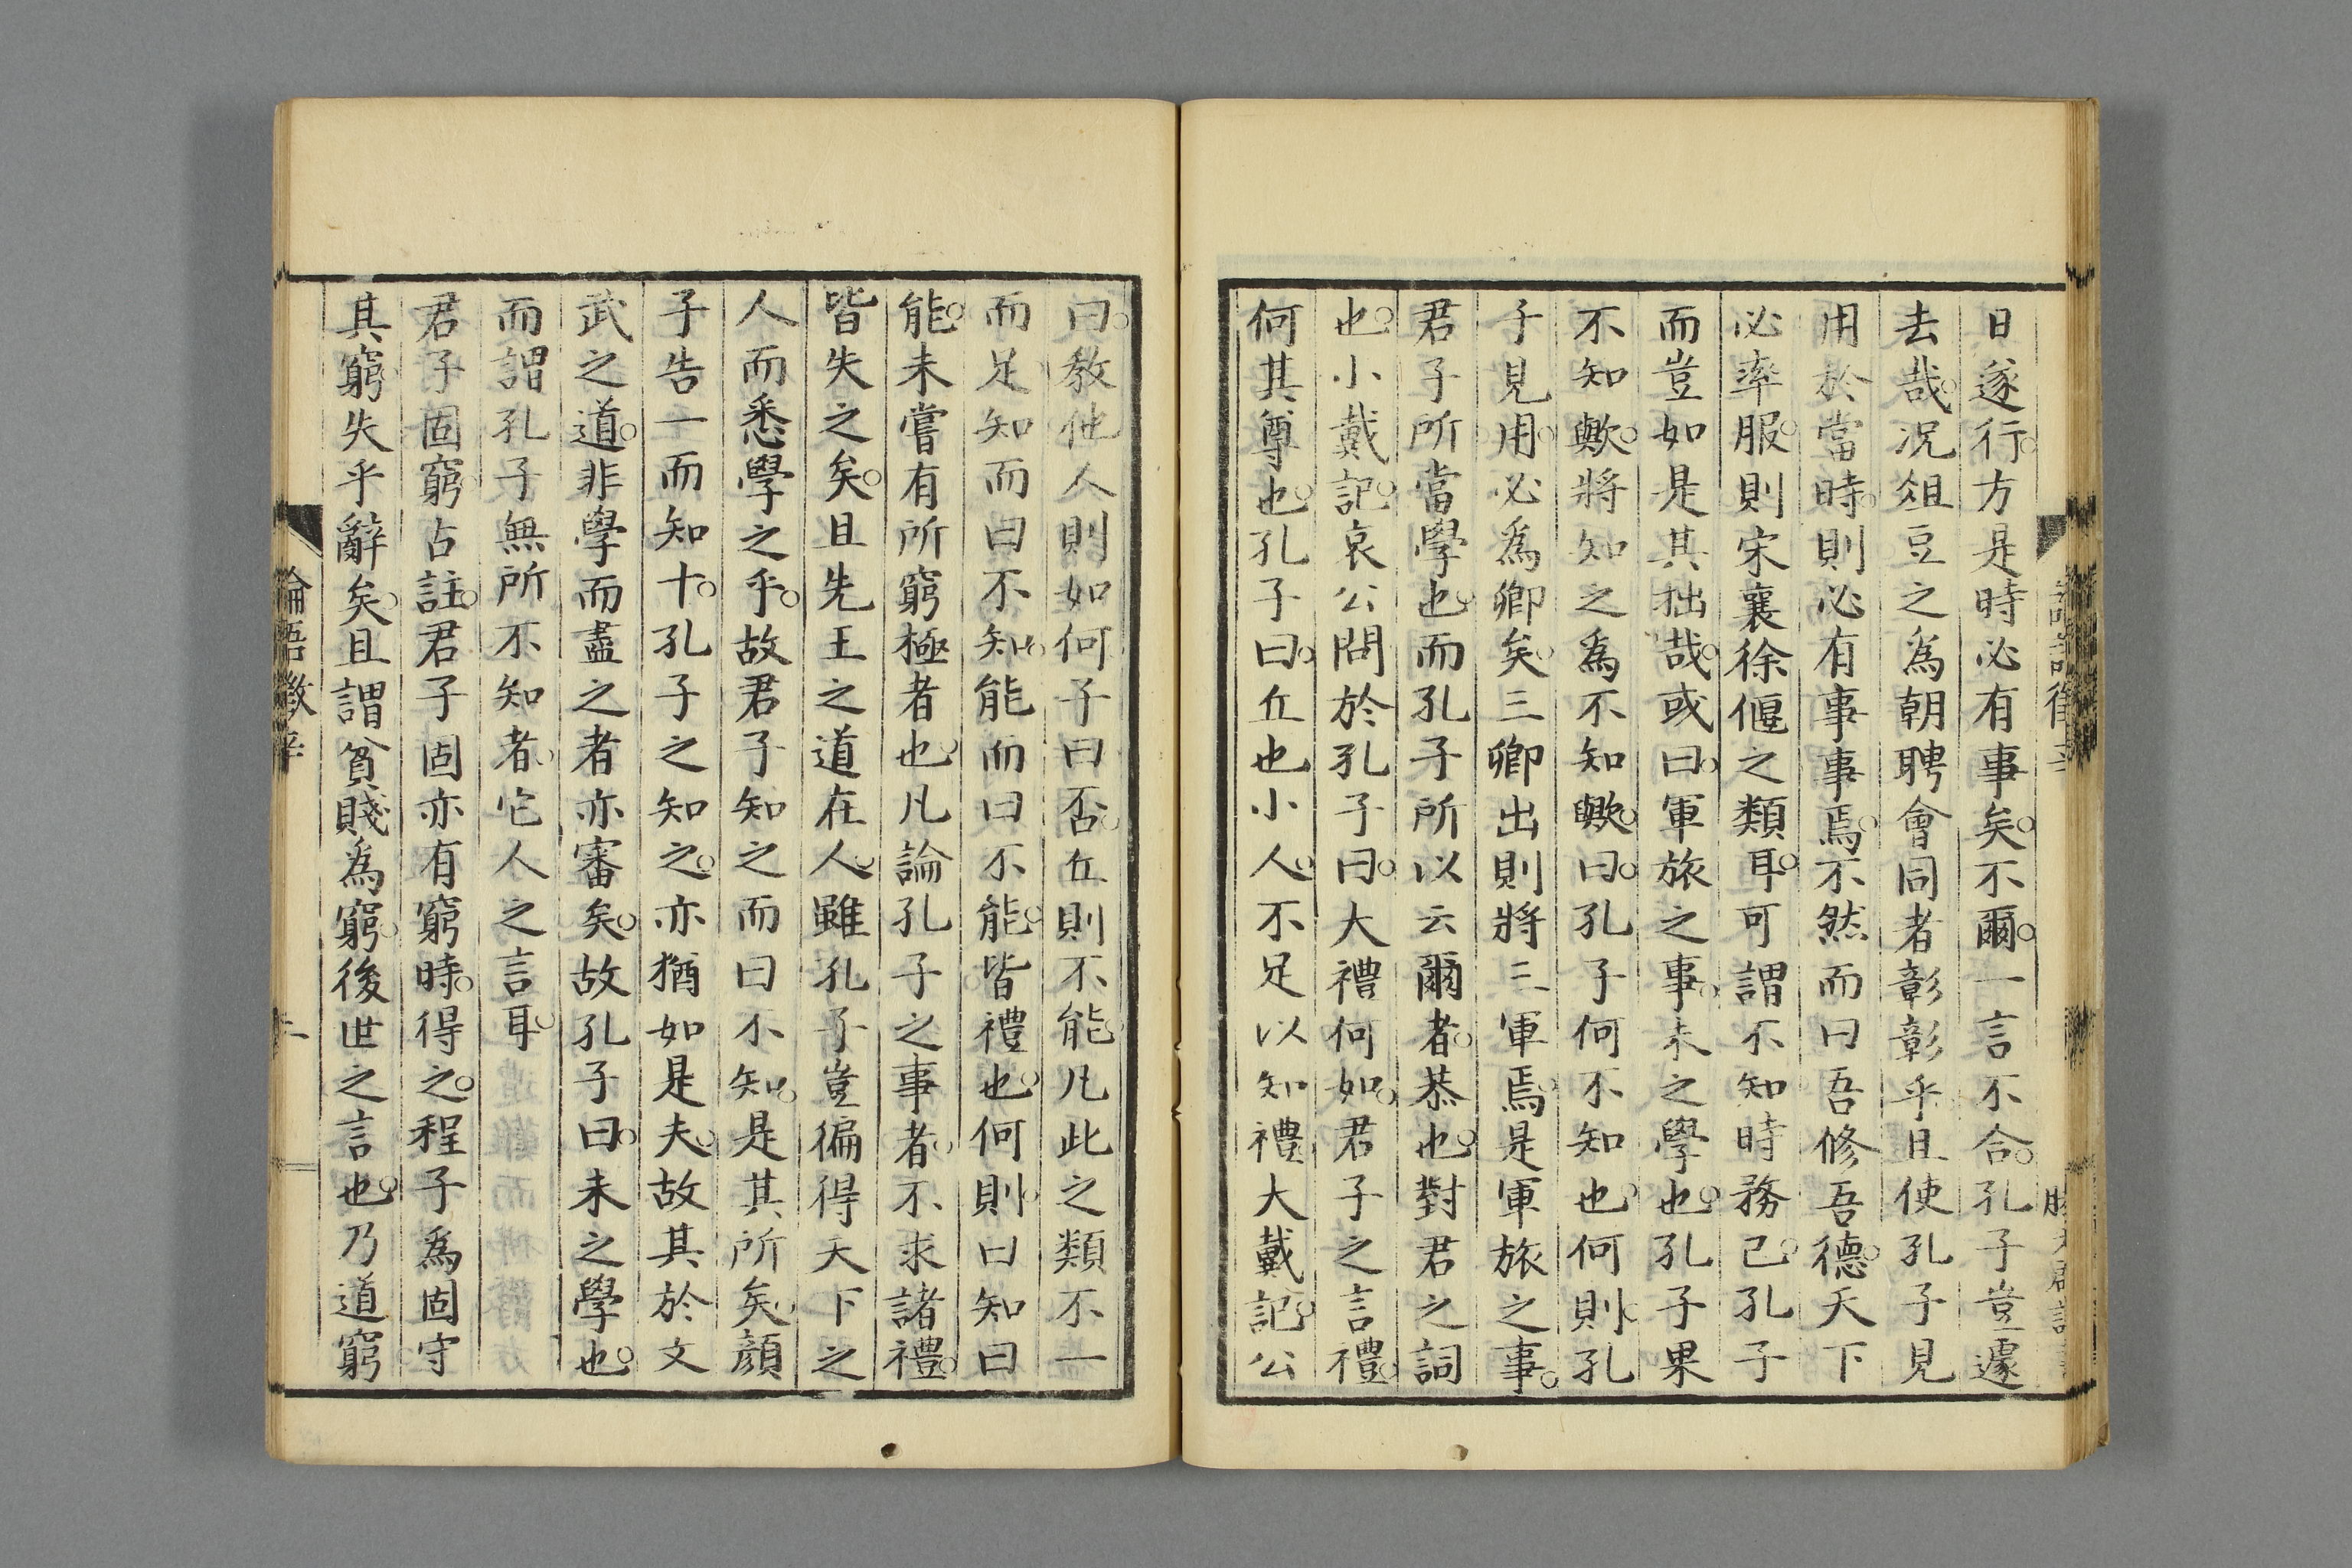 日遂行。方是時必有事矣。不爾。一言不合。孔子豈遽
去哉。況俎豆之為朝聘會同者彰彰乎。且使孔子見
用於當時。則必有事事焉。不然而曰吾修吾德。天下
必率服。則宋襄徐偃之類耳。可謂不知時務已。孔子
而豈如是其拙哉。或曰。軍旅之事。未之學也。孔子果
不知歟。將知之為不知歟。曰。孔子何不知也。何則。孔
子見用。必為卿矣。三卿出則將三軍焉。是軍旅之事。
君子所當學也。而孔子所以云爾者。恭也。對君之詞
也。小戴記。哀公問於孔子曰。大禮何如。君子之言禮。
何其尊也。孔子曰。丘也小人。不足以知禮。大戴記。公
曰。教他人則如何。子曰。否。丘則不能。凡此之類。不一
而足。知而曰不知。能而曰不能。皆禮也。何則。曰知曰
能。未嘗有所窮極者也。凡論孔子之事者。不求諸禮。
皆失之矣。且先王之道在人。雖孔子豈徧得天下之
人而悉學之乎。故君子知之而曰不知。是其所矣。顏
子告一而知十。孔子之知之。亦猶如是夫。故其於文
武之道。非學而盡之者亦審矣。故孔子曰。未之學也。
而謂孔子無所不知者。它人之言耳。
君子固窮。古註。君子固亦有窮時。得之。程子為固守
其窮。失乎辭矣。且謂貧賤為窮。後世之言也。乃道窮
論語徵